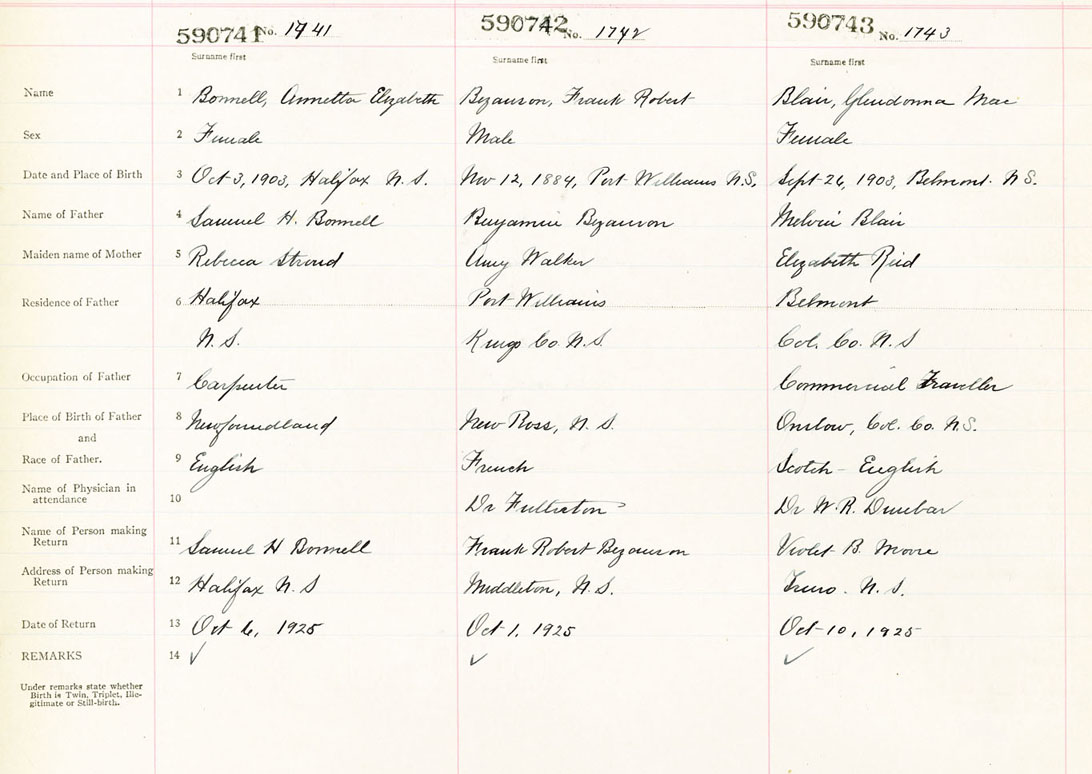 590741 No. 1741 590742 No. 1742 590743 No. 1743
Surname first Surname first Surname first
Name 1 Bonnell, Annetta Elizabeth Bezanson, Frank Robert Blair, Glendonna Mae
Sex 2 Female Male Female
Date and Place of Birth 3 Oct 3, 1903, Halifax N.S. Nov 12, 1884, Port Williams N.S. Sept 26, 1903, Belmont. N.S.
Name of Father 4 Samuel H. Bonnell Benjamin Bezanson Melvin Blair
Maiden name of Mother 5 Rebecca Stroud Amy Walker Elizabeth Reid
Residence of Father 6 Halifax Port Williams Belmont
N.S. Kings Co. N.S. Col. Co. N.S
Occupation of Father 7 Carpenter Commercial Traveller
Place of Birth of Father 8 Newfoundland New Ross, N.S. Onslow, Col. Co. N.S.
and
Race of Father. 9 English French Scotch - English
Name of Physician in
attendance 10 Dr Fullerton Dr W.R. Dunbar
Name of Person making
Return 11 Samuel H Bonnell Frank Robert Bezanson Violet B. Moore
Address of Person making
Return 12 Halifax N.S Middleton, N.S. Truro. N.S.
Date of Return 13 Oct 6, 1925 Oct 1, 1925 Oct 10, 1925
REMARKS 14 ✓ ✓ ✓
Under remarks state whether
Birth is Twin, Triplet, Ille-
gitimate or Still-birth.